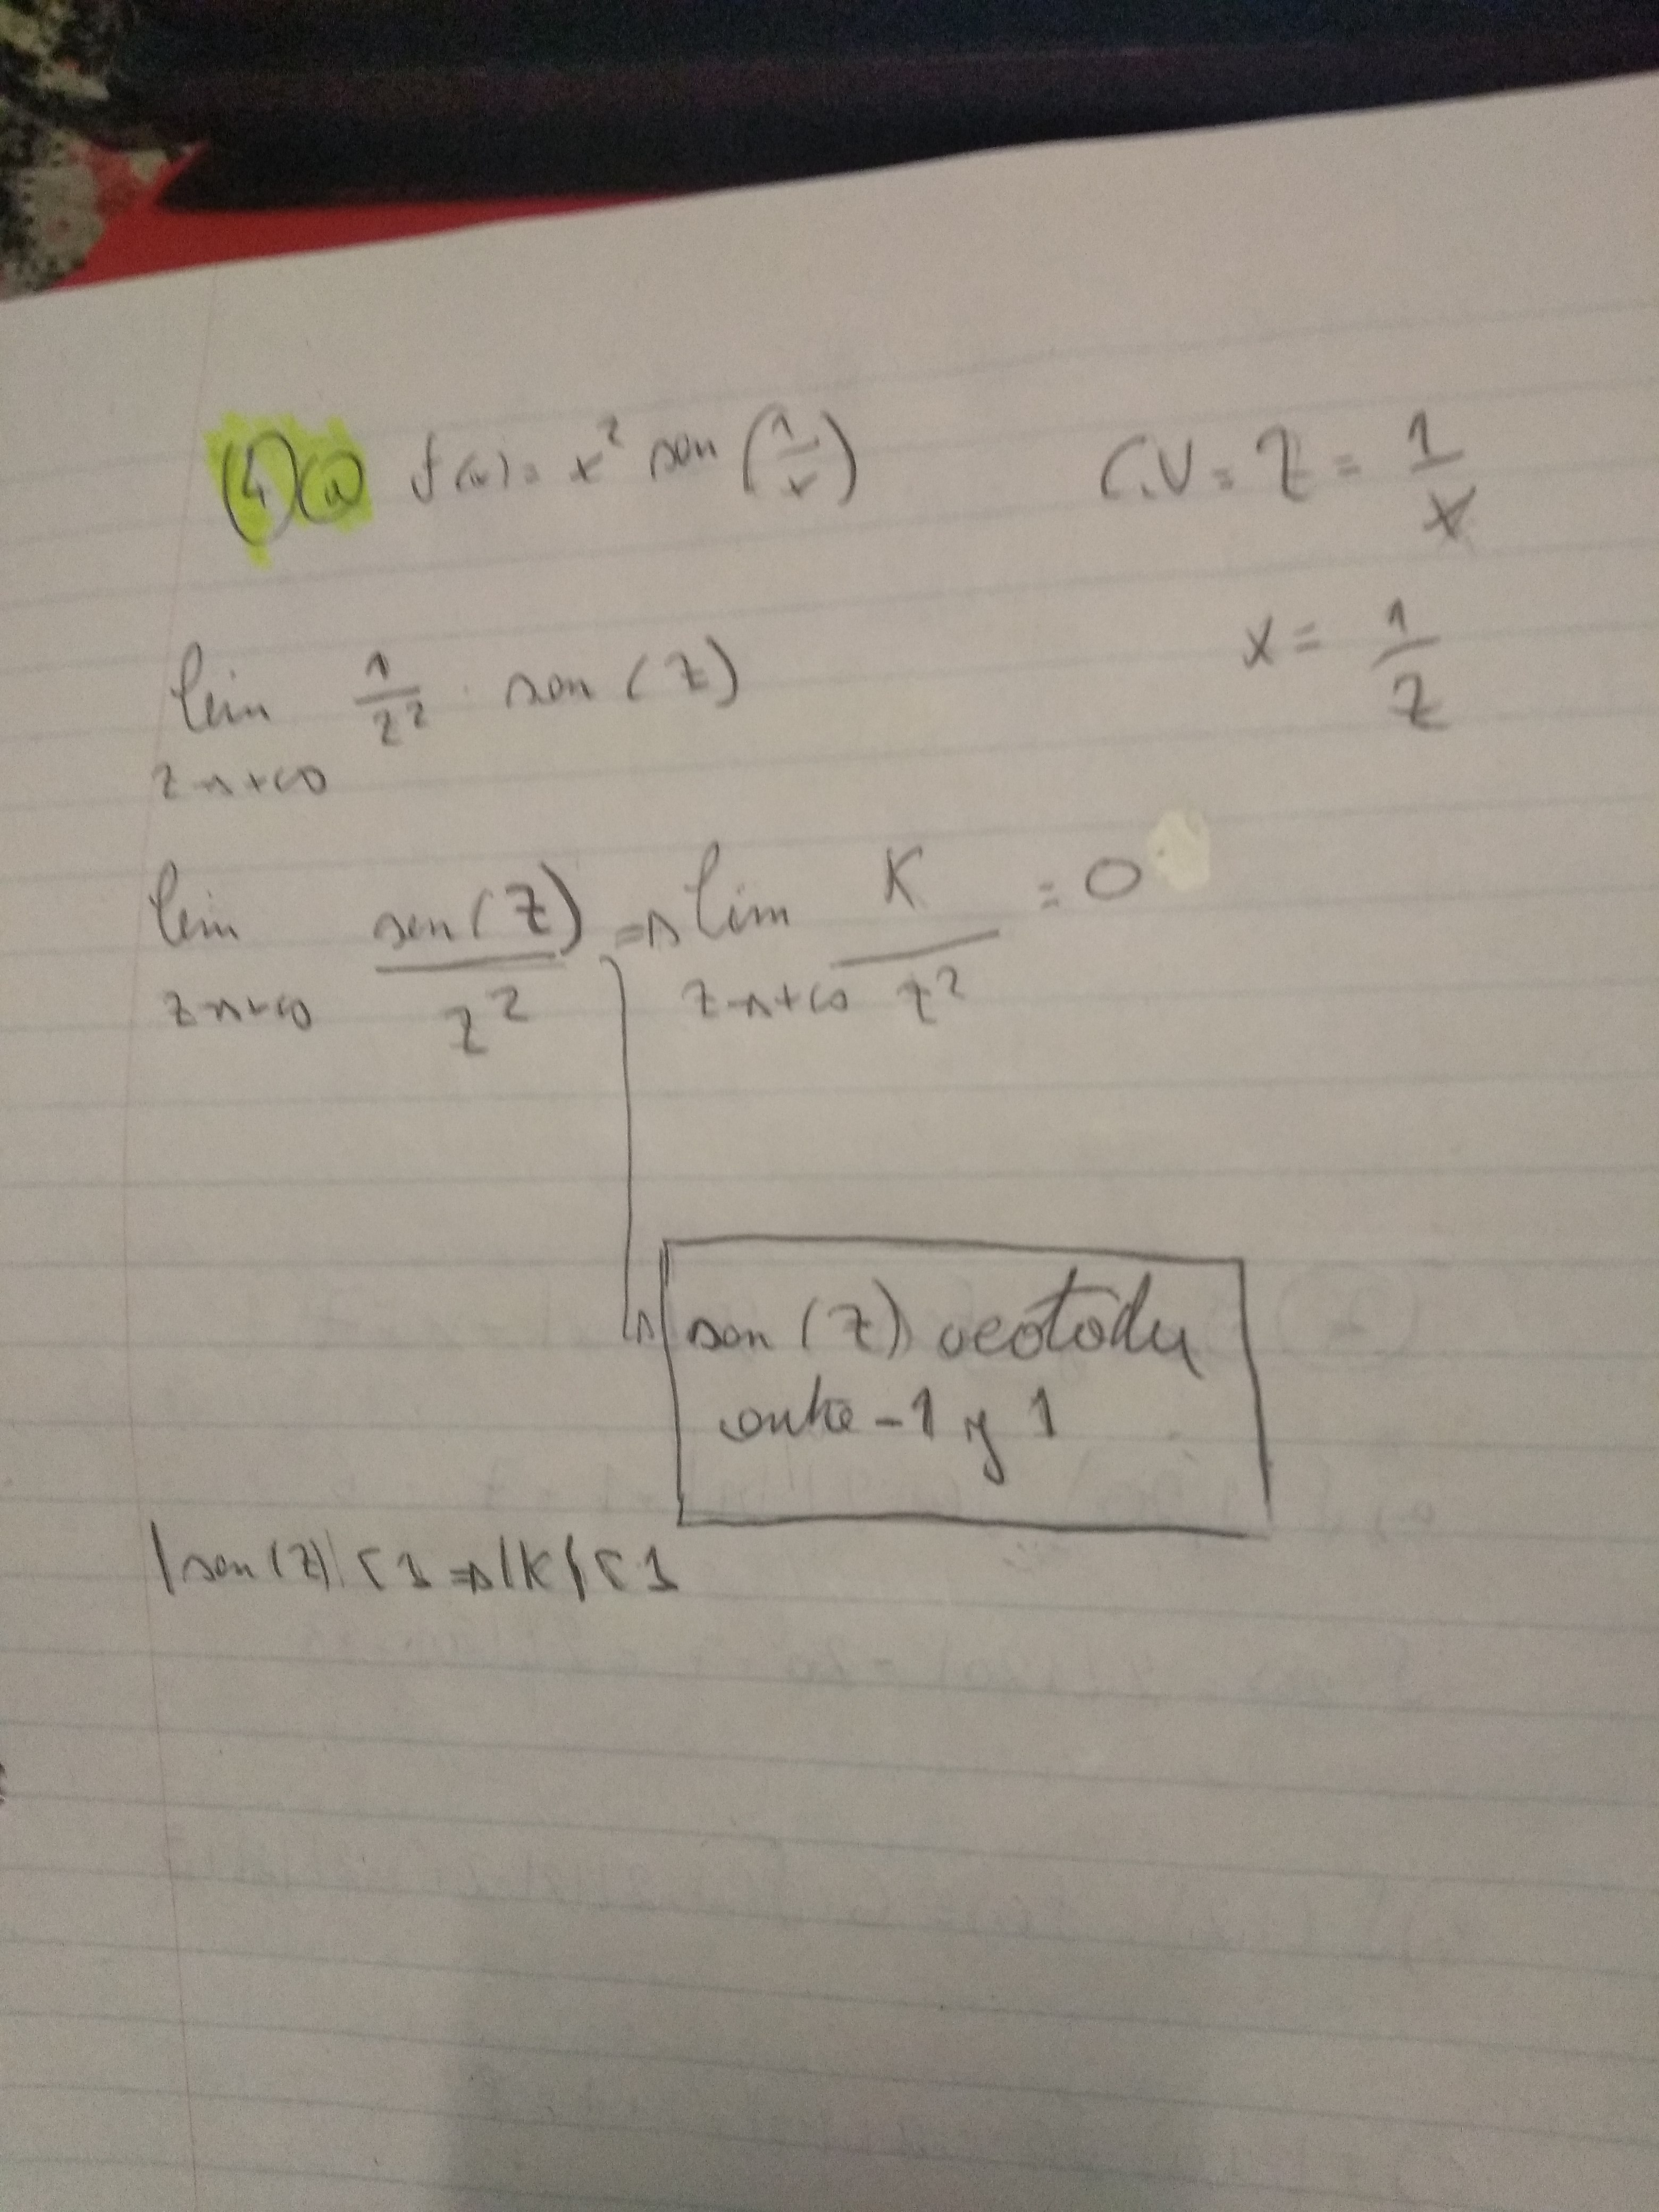 (4)(a) f(x) = x² sen (1/x) C.V = Z = 1/x
x = 1/z
lim z→+∞ 1/z² · sen (z)
lim z→+∞ sen(z)/z² ⇒ lim z→+∞ K/z² = 0
sen (z)
entre -1 y 1
|sen(z)| ≤ 1 ⇒ |K| ≤ 1